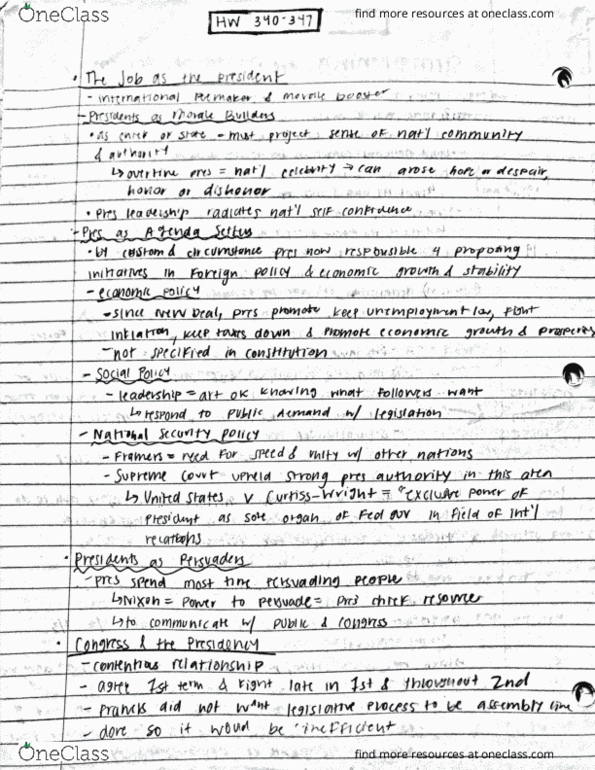 OneClass
find more resources at oneclass.com
HW 340-347
• The Job as the President
- international Peacemaker & morale booster
- Presidents as Morale Builders
• as chief of state - must project sense of nat'l community
& authority
↳ overtime pres = nat'l celebrity → can arose hope or despair,
honor or dishonor
• Pres leadership radiates nat'l self confidence
- Pres as Agenda Setters
• by custom & circumstance pres now responsible 4 proposing
initiatives in Foreign policy & economic growth & stability
- economic policy
- since New Deal, pres promote keep unemployment low, fight
inflation, keep taxes down & promote economic growth & prosperity
- not specified in constitution
- Social Policy
- leadership = art of knowing what followers want
↳ respond to public demand w/ legislation
- National Security policy
- Framers = need for speed & unity w/ other nations
- Supreme Court upheld strong pres authority in this area
↳ United States v Curtiss-Wright = "exclusive power of
President as sole organ of Fed gov in field of int'l
relations
• Presidents as Persuaders
- pres spend most time persuading people
↳ Nixon = power to persuade = pres chief resource
↳ to communicate w/ public & congress
• Congress & the Presidency
- contentious relationship
- agree 1st term & fight late in 1st & throughout 2nd
- framers did not want legislative process to be assembly line
- done so it would be inefficient
OneClass
find more resources at oneclass.com